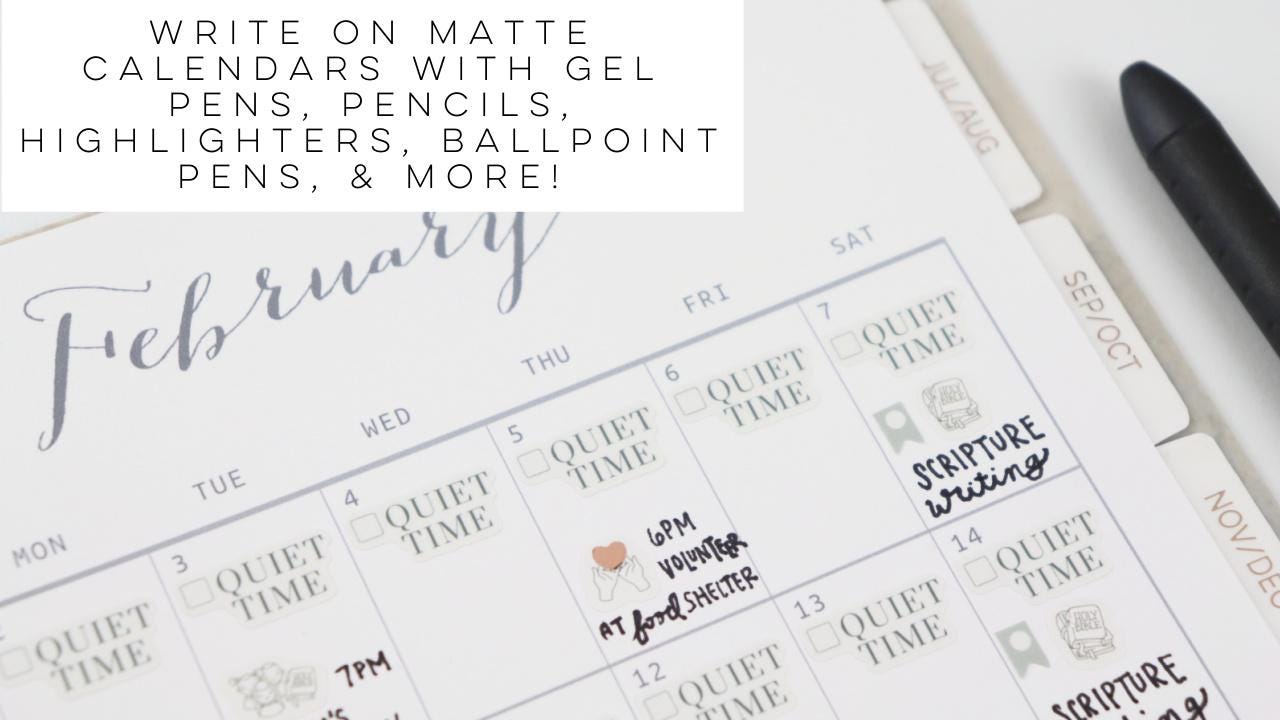 WRITE ON MATTE
CALENDARS WITH GEL
PENS, PENCILS,
HIGHLIGHTERS, BALLPOINT
PENS, & MORE!
JUL/AUG
SEP/OCT
NOV/DEC
February
MON
TUE
WED
THU
FRI
SAT
QUIET
TIME
3
QUIET
TIME
7PM
4
QUIET
TIME
5
QUIET
TIME
6PM
VOLUNTEER
AT food SHELTER
6
QUIET
TIME
7
QUIET
TIME
HOLY
BIBLE
SCRIPTURE
writing
12
QUIET
TIME
13
QUIET
TIME
14
QUIET
TIME
HOLY
BIBLE
SCRIPTURE